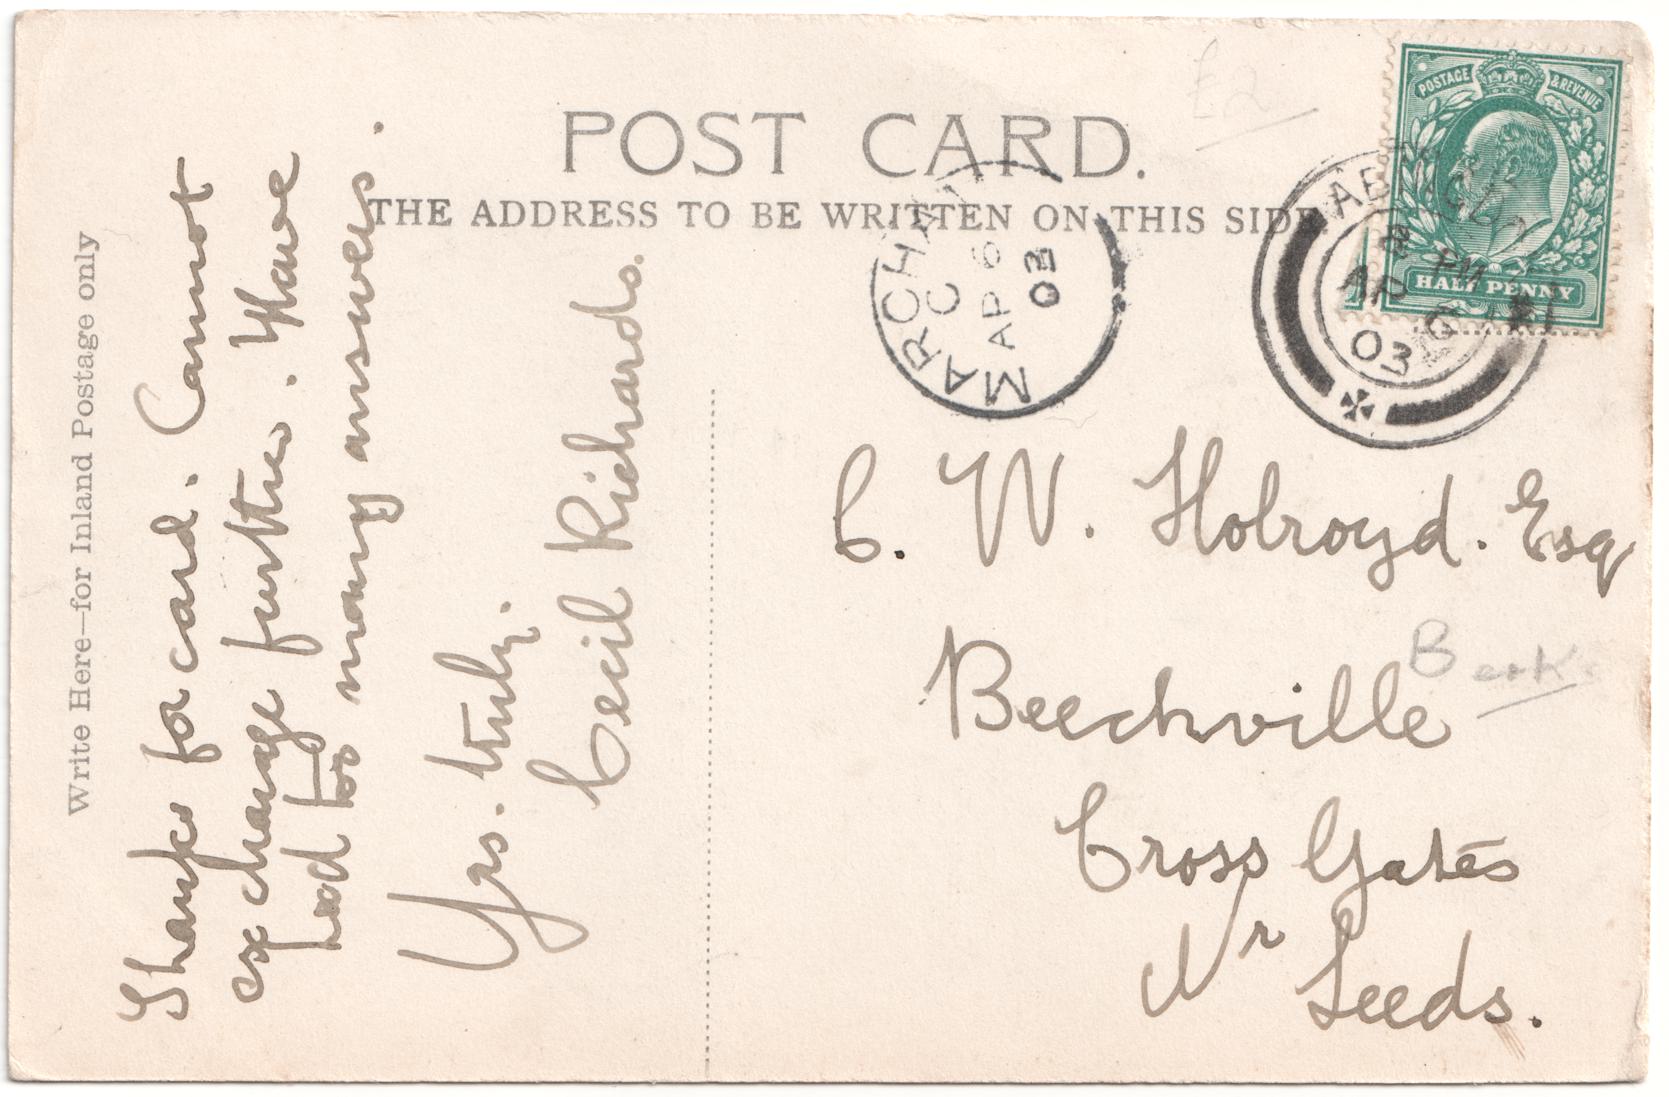 POST CARD.
THE ADDRESS TO BE WRITTEN ON THIS SIDE.
Write Here—for Inland Postage only
Thanks for card. Cannot
exchange further. Have
had too many answers.
Yrs. truly.
Cecil Richards.
C. W. Holroyd. Esq
Beechville
Cross Gates
Nr Leeds.
£2
Berks
MARCHAM
C
AP 6
03
POSTAGE & REVENUE
HALF PENNY
PM
AP 6
03